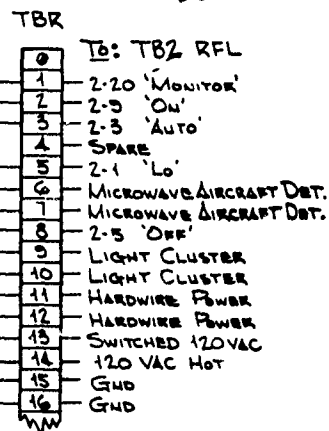 TBR
TO: TB2 RFL
0
1 2-20 'MONITOR'
2 2-9 'ON'
3 2-3 'AUTO'
4 SPARE
5 2-1 'LO'
6 MICROWAVE AIRCRAFT DET.
7 MICROWAVE AIRCRAFT DET.
8 2-5 'OFF'
9 LIGHT CLUSTER
10 LIGHT CLUSTER
11 HARDWIRE POWER
12 HARDWIRE POWER
13 SWITCHED 120 VAC
14 120 VAC HOT
15 GND
16 GND